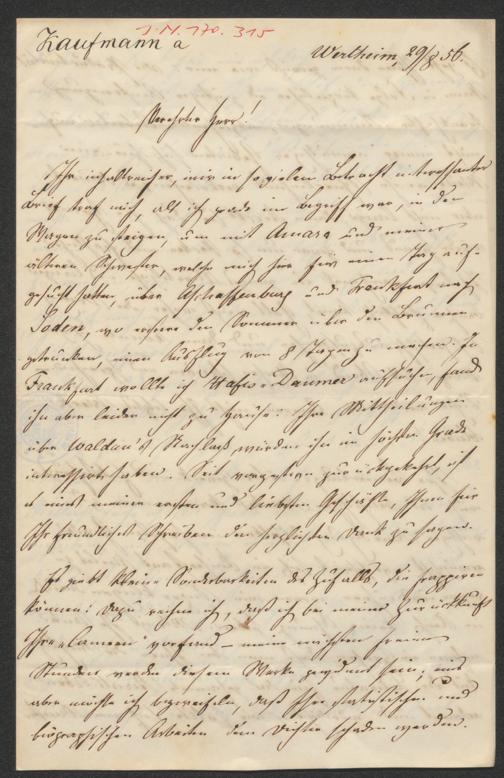 J. N. 170. 315
Kaufmann a
Wertheim, 29/8 56.
Verehrter Herr!
Ihr inhaltreicher, mir in so vielem Betracht interessanter
Brief traf mich, als ich grade im Begriff war, in den
Wagen zu steigen, um mit Amara und meiner
älteren Schwester, welche mich hier für einen Tag auf-
gesucht hatten, über Aschaffenburg und Frankfurt nach
Soden, wo erstere den Sommer über den Brunnen
getrunken, einen Ausflug von 8 Tagen zu machen. In
Frankfurt wollte ich Hafis-Daumer aufsuchen, fand
ihn aber leider nicht zu Hause. Ihre Mittheilungen
über Waldau's Nachlaß würden ihn im höchsten Grade
interessirt haben. Seit vorgestern zurückgekehrt, ist
es eins meiner ersten und liebsten Geschäfte, Ihnen für
Ihr freundliches Schreiben den herzlichsten Dank zu sagen.
Es gibt kleine Sonderbarkeiten des Zufalls, die frappiren
können: dazu rechne ich, daß ich bei meiner Zurückkunft
Ihre vorfand – meine nächsten freien
Stunden werden diesem Werke gewidmet sein; nur
aber möchte ich bezweifeln, daß Ihre statistischen und
biographischen Arbeiten dem Dichter schaden werden.